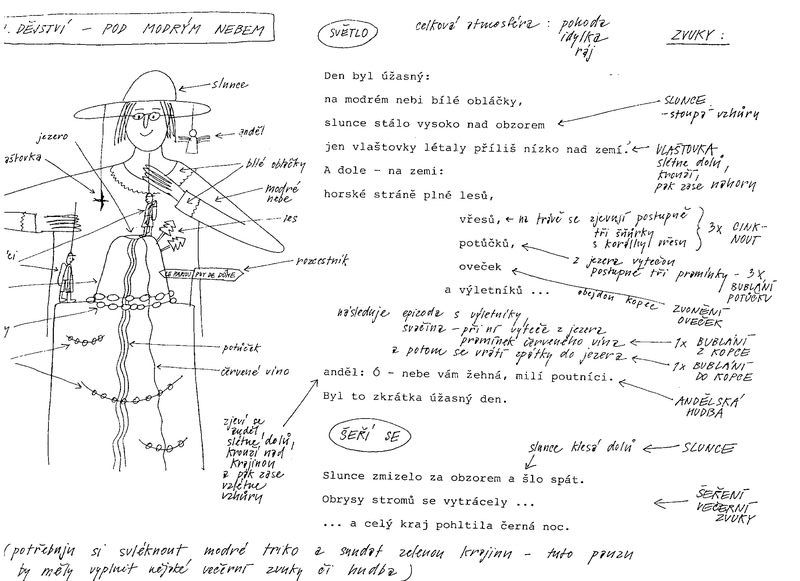 . DĚJSTVÍ – POD MODRÝM NEBEM
SVĚTLO
celková atmosféra : pohoda
idylka
ráj
ZVUKY :
slunce
jezero
anděl
aštovka
bílé obláčky
modré
nebe
les
rozcestník
LE PARDU PUY DE DÔME
potůček
červené víno
Den byl úžasný:
na modrém nebi bílé obláčky,
slunce stálo vysoko nad obzorem
SLUNCE
-stoupá vzhůru
jen vlaštovky létaly příliš nízko nad zemí.
VLAŠTOVKA
slétne dolů,
krouží,
pak zase nahoru
A dole – na zemi:
horské stráně plné lesů,
vřesů,
na trávě se zjevují postupně
tři šňůrky
s korálky vřesu
3x CINK-
NOUT
potůčků,
z jezera vytečou
postupně tři pramínky – 3x
BUBLÁNÍ
POTŮČKU
oveček
obejdou kopec
ZVONĚNÍ
OVEČEK
a výletníků ...
následuje epizoda s výletníky,
svačina – při ní vyteče z jezera
pramínek červeného vína
1x BUBLÁNÍ
Z KOPCE
a potom se vrátí zpátky do jezera
1x BUBLÁNÍ
DO KOPCE
anděl: Ó – nebe vám žehná, milí poutníci.
ANDĚLSKÁ
HUDBA
Byl to zkrátka úžasný den.
zjeví se
anděl
slétne dolů,
krouží nad
krajinou
a pak zase
vzlétne
vzhůru
ŠEŘÍ SE
slunce klesá dolů
SLUNCE
Slunce zmizelo za obzorem a šlo spát.
Obrysy stromů se vytrácely ...
ŠEŘENÍ
VEČERNÍ
ZVUKY
... a celý kraj pohltila černá noc.
(potřebuju si svléknout modré triko a sundat zelenou krajinu – tuto pauzu
by měly vyplnit nějaké večerní zvuky či hudba)